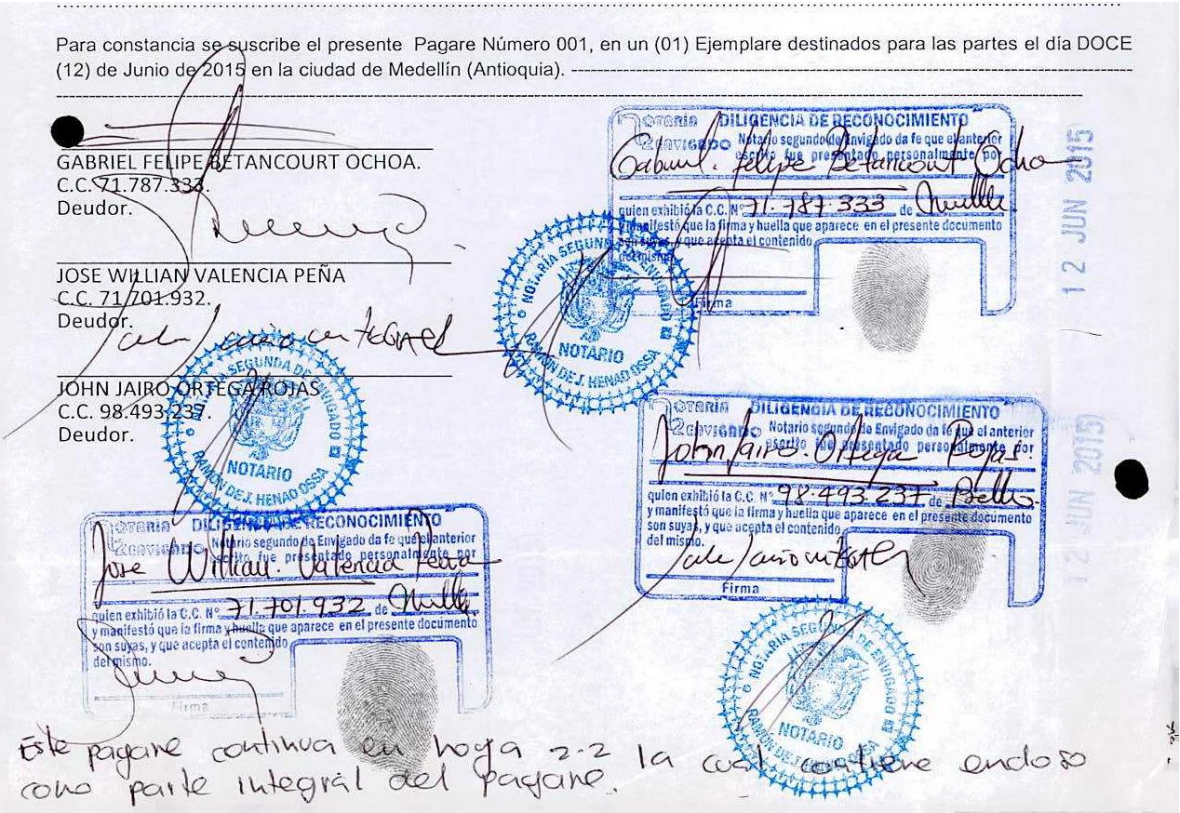 Para constancia se suscribe el presente Pagare Número 001, en un (01) Ejemplare destinados para las partes el día DOCE
(12) de Junio de 2015 en la ciudad de Medellín (Antioquia).
GABRIEL FELIPE BETANCOURT OCHOA.
C.C. 71.787.333.
Deudor.
JOSE WILLIAN VALENCIA PEÑA
C.C. 71.701.932.
Deudor.
JOHN JAIRO ORTEGA ROJAS
C.C. 98.493.237.
Deudor.
NOTARIA DILIGENCIA DE RECONOCIMIENTO
2 ENVIGADO Notario segundo de Envigado da fe que el anterior
escrito fue presentado personalmente por
Gabriel. Felipe Betancourt Ochoa
quien exhibió la C.C. Nº 71.787.333 de
y manifestó que la firma y huella que aparece en el presente documento
son suyas, y que acepta el contenido
del mismo.
Firma
12 JUN 2015
NOTARIA SEGUNDA DE ENVIGADO
NOTARIO
RAMON DE J. HENAO OSSA
NOTARIA SEGUNDA DE ENVIGADO
NOTARIO
RAMON DE J. HENAO OSSA
NOTARIA DILIGENCIA DE RECONOCIMIENTO
2 ENVIGADO Notario segundo de Envigado da fe que el anterior
escrito fue presentado personalmente por
John Jairo. Ortega Rojas.
quien exhibió la C.C. Nº 98.493.237 de Bello.
y manifestó que la firma y huella que aparece en el presente documento
son suyas, y que acepta el contenido
del mismo.
Firma
12 JUN 2015
NOTARIA DILIGENCIA DE RECONOCIMIENTO
2 ENVIGADO Notario segundo de Envigado da fe que el anterior
escrito fue presentado personalmente por
Jose Willian. Valencia Peña
quien exhibió la C.C. Nº 71.701.932 de
y manifestó que la firma y huella que aparece en el presente documento
son suyas, y que acepta el contenido
del mismo.
Firma
NOTARIA SEGUNDA DE ENVIGADO
NOTARIO
RAMON DE J. HENAO OSSA
Este pagare continua en hoja 2-2 la cual contiene endoso
como parte integral del pagare.